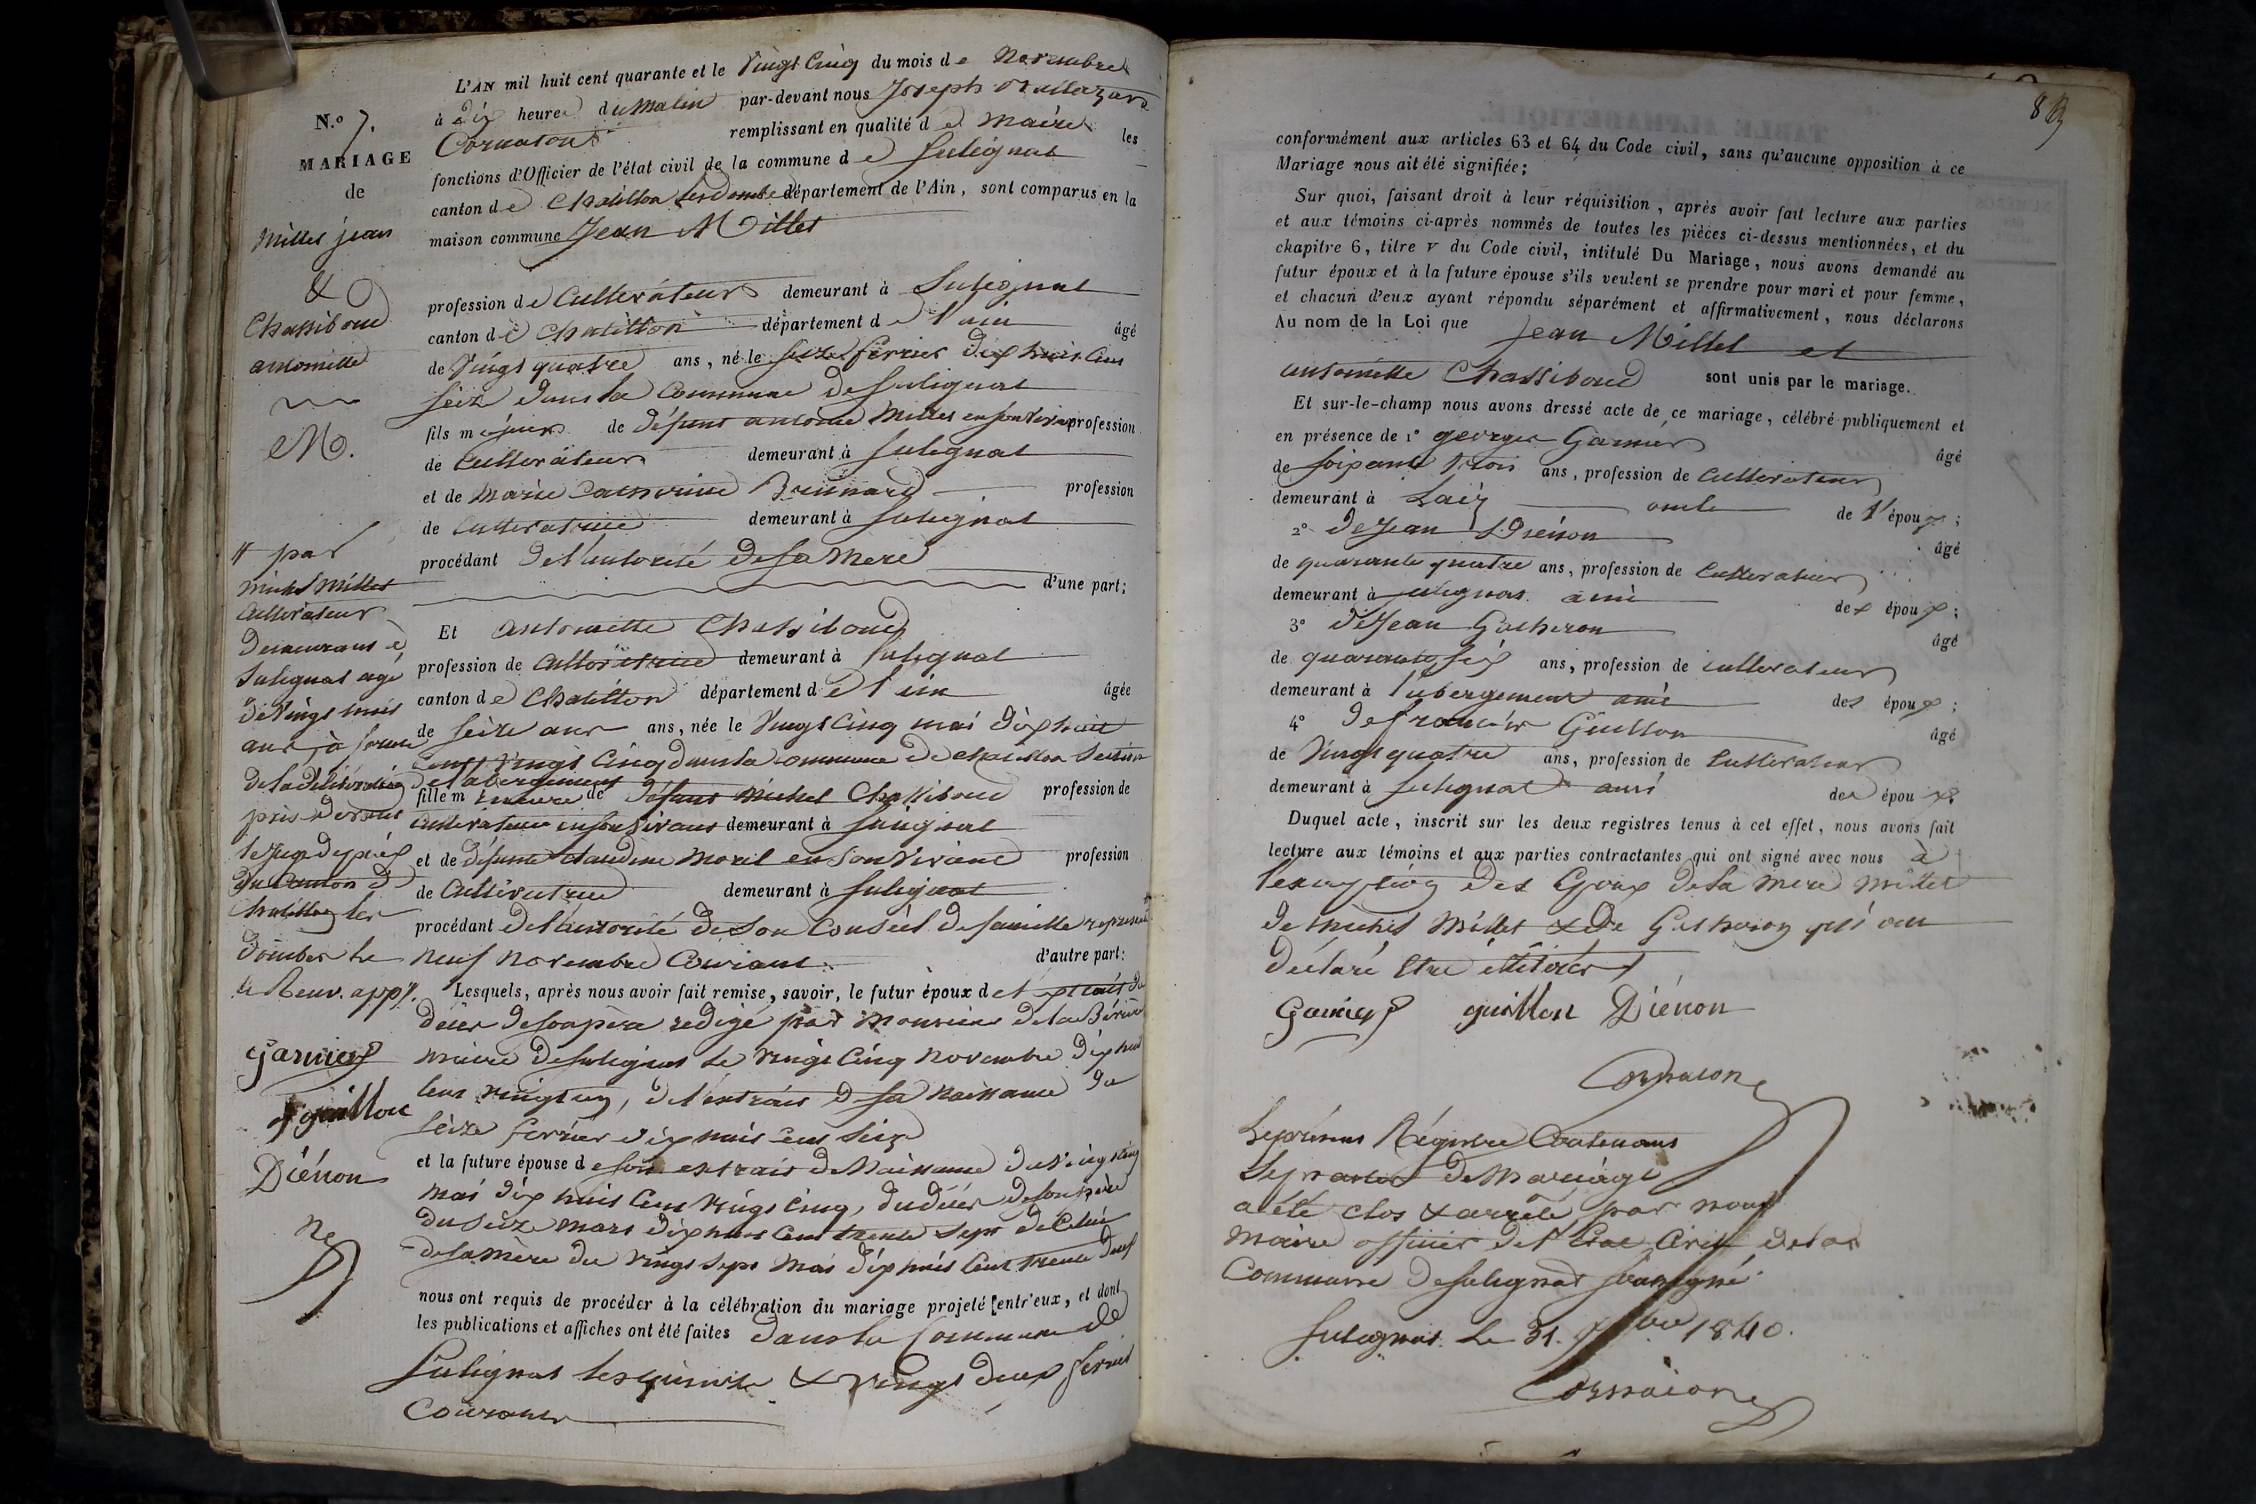 N.º 7.
MARIAGE
de
Millet jean
&
Chassiboud
antoinette
M.
L'AN mil huit cent quarante et le Vingt Cinq du mois de Novembre
à Dix heures du Matin par-devant nous Joseph
Cornaton remplissant en qualité de Maire les
fonctions d'Officier de l'état civil de la commune de Sulignat
canton de Chatillon les dombes département de l'Ain, sont comparus en la
maison commune Jean Millet
profession de Cultivateur demeurant à Sulignat
canton de Chatillon département de l'ain âgé
de Vingt quatre ans, né le seize fevrier dix huit cent
seize dans la Commune de Sulignat
fils majeur de défunt antoine Millet en son vivant profession
de Cultivateur demeurant à Sulignat
et de Marie Catherine profession
de Cultivatrice demeurant à Sulignat
procédant de l'autorité de sa Mere
d'une part;
Et antoinette Chassiboud
profession de Cultivatrice demeurant à Sulignat
canton de Chatillon département de l'ain âgée
de seize ans ans, née le Vingt Cinq mai dix huit
cent vingt Cinq dans la commune de Chatillon section
de l'abergement
fille mineure de défunt Michel Chassiboud profession de
Cultivateur en son vivant demeurant à Sulignat
et de défunte Claudine Morel en son vivant profession
de Cultivatrice demeurant à Sulignat
procédant de l'autorité de son Conseil de famille représenté
# par
michel Millet
Cultivateur
demeurant à
Sulignat agé
de vingt huit
ans, à forme
de la délibération
prise devant
le juge de paix
du Canton de
Chatillon les
Dombes le
neuf Novembre Courant d'autre part:
le Renv. app.
Garnier
f guillon
Diénon
Lesquels, après nous avoir fait remise, savoir, le futur époux de l'extrait du
décès de son père redigé par Monsieur de la
maire de Sulignat le vingt Cinq Novembre dix huit
cent vingt, de l'extrait de sa Naissance du
seize fevrier dix huit cent seize
et la future épouse de son extrait de Naissance du vingt cinq
mai dix huit Cent vingt Cinq, du décès de son père
du seize mars dix huit Cent trente sept de Celui
de sa mère du vingt sept Mai dix huit Cent trente
nous ont requis de procéder à la célébration du mariage projeté entr'eux, et dont
les publications et affiches ont été faites dans la Commune de
Sulignat les quinze & vingt deux
Courant
83
conformément aux articles 63 et 64 du Code civil, sans qu'aucune opposition à ce
Mariage nous ait été signifiée;
Sur quoi, faisant droit à leur réquisition, après avoir fait lecture aux parties
et aux témoins ci-après nommés de toutes les pièces ci-dessus mentionnées, et du
chapitre 6, titre V du Code civil, intitulé Du Mariage, nous avons demandé au
futur époux et à la future épouse s'ils veulent se prendre pour mari et pour femme,
et chacun d'eux ayant répondu séparément et affirmativement, nous déclarons
Au nom de la Loi que Jean Millet et
antoinette Chassiboud sont unis par le mariage.
Et sur-le-champ nous avons dressé acte de ce mariage, célébré publiquement et
en présence de 1º georges Garnier âgé
de soixante trois ans, profession de Cultivateur
demeurant à Laiz oncle de l'époux;
2º de Jean Diénon âgé
de quarante quatre ans, profession de Cultivateur
demeurant à Sulignat ami des époux;
3º de Jean Gacheron âgé
de quarante six ans, profession de cultivateur
demeurant à l'abergement ami des époux;
4º de francois Guillon âgé
de Vingt quatre ans, profession de Cultivateur
demeurant à Sulignat ami des époux
Duquel acte, inscrit sur les deux registres tenus à cet effet, nous avons fait
lecture aux témoins et aux parties contractantes qui ont signé avec nous à
l'exception des Epoux de la mere Millet
de Michel Millet & de Gacheron qui ont
déclaré être illitérés
Garnier guillon Diénon
Cornaton
Le présent Régistre Contenant
Sept actes de Mariage
a été clos & arrêté par nous
Maire officier de l'Etat Civil de la
Commune de Sulignat soussigné
Sulignat le 31. Xbre 1840.
Cornaton